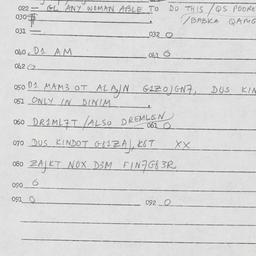 022 — GL ANY WOMAN ABLE TO DO THIS / QS POORE
030
/BABKA QAMG
031 — 032 O
040 D1 AM 041 O
042 O
050 D1 MAM3 OT ALAJN G1ZOJGN7, DUS KIN
051 ONLY IN DINIM
060 DR1ML7T /ALSO DREMLGN
061 O
070 DUS KINDOT G81ZAJ,K6T XX
080 ZAJKT NOX D3M FIN7G83R
090 O
091 O 092 O